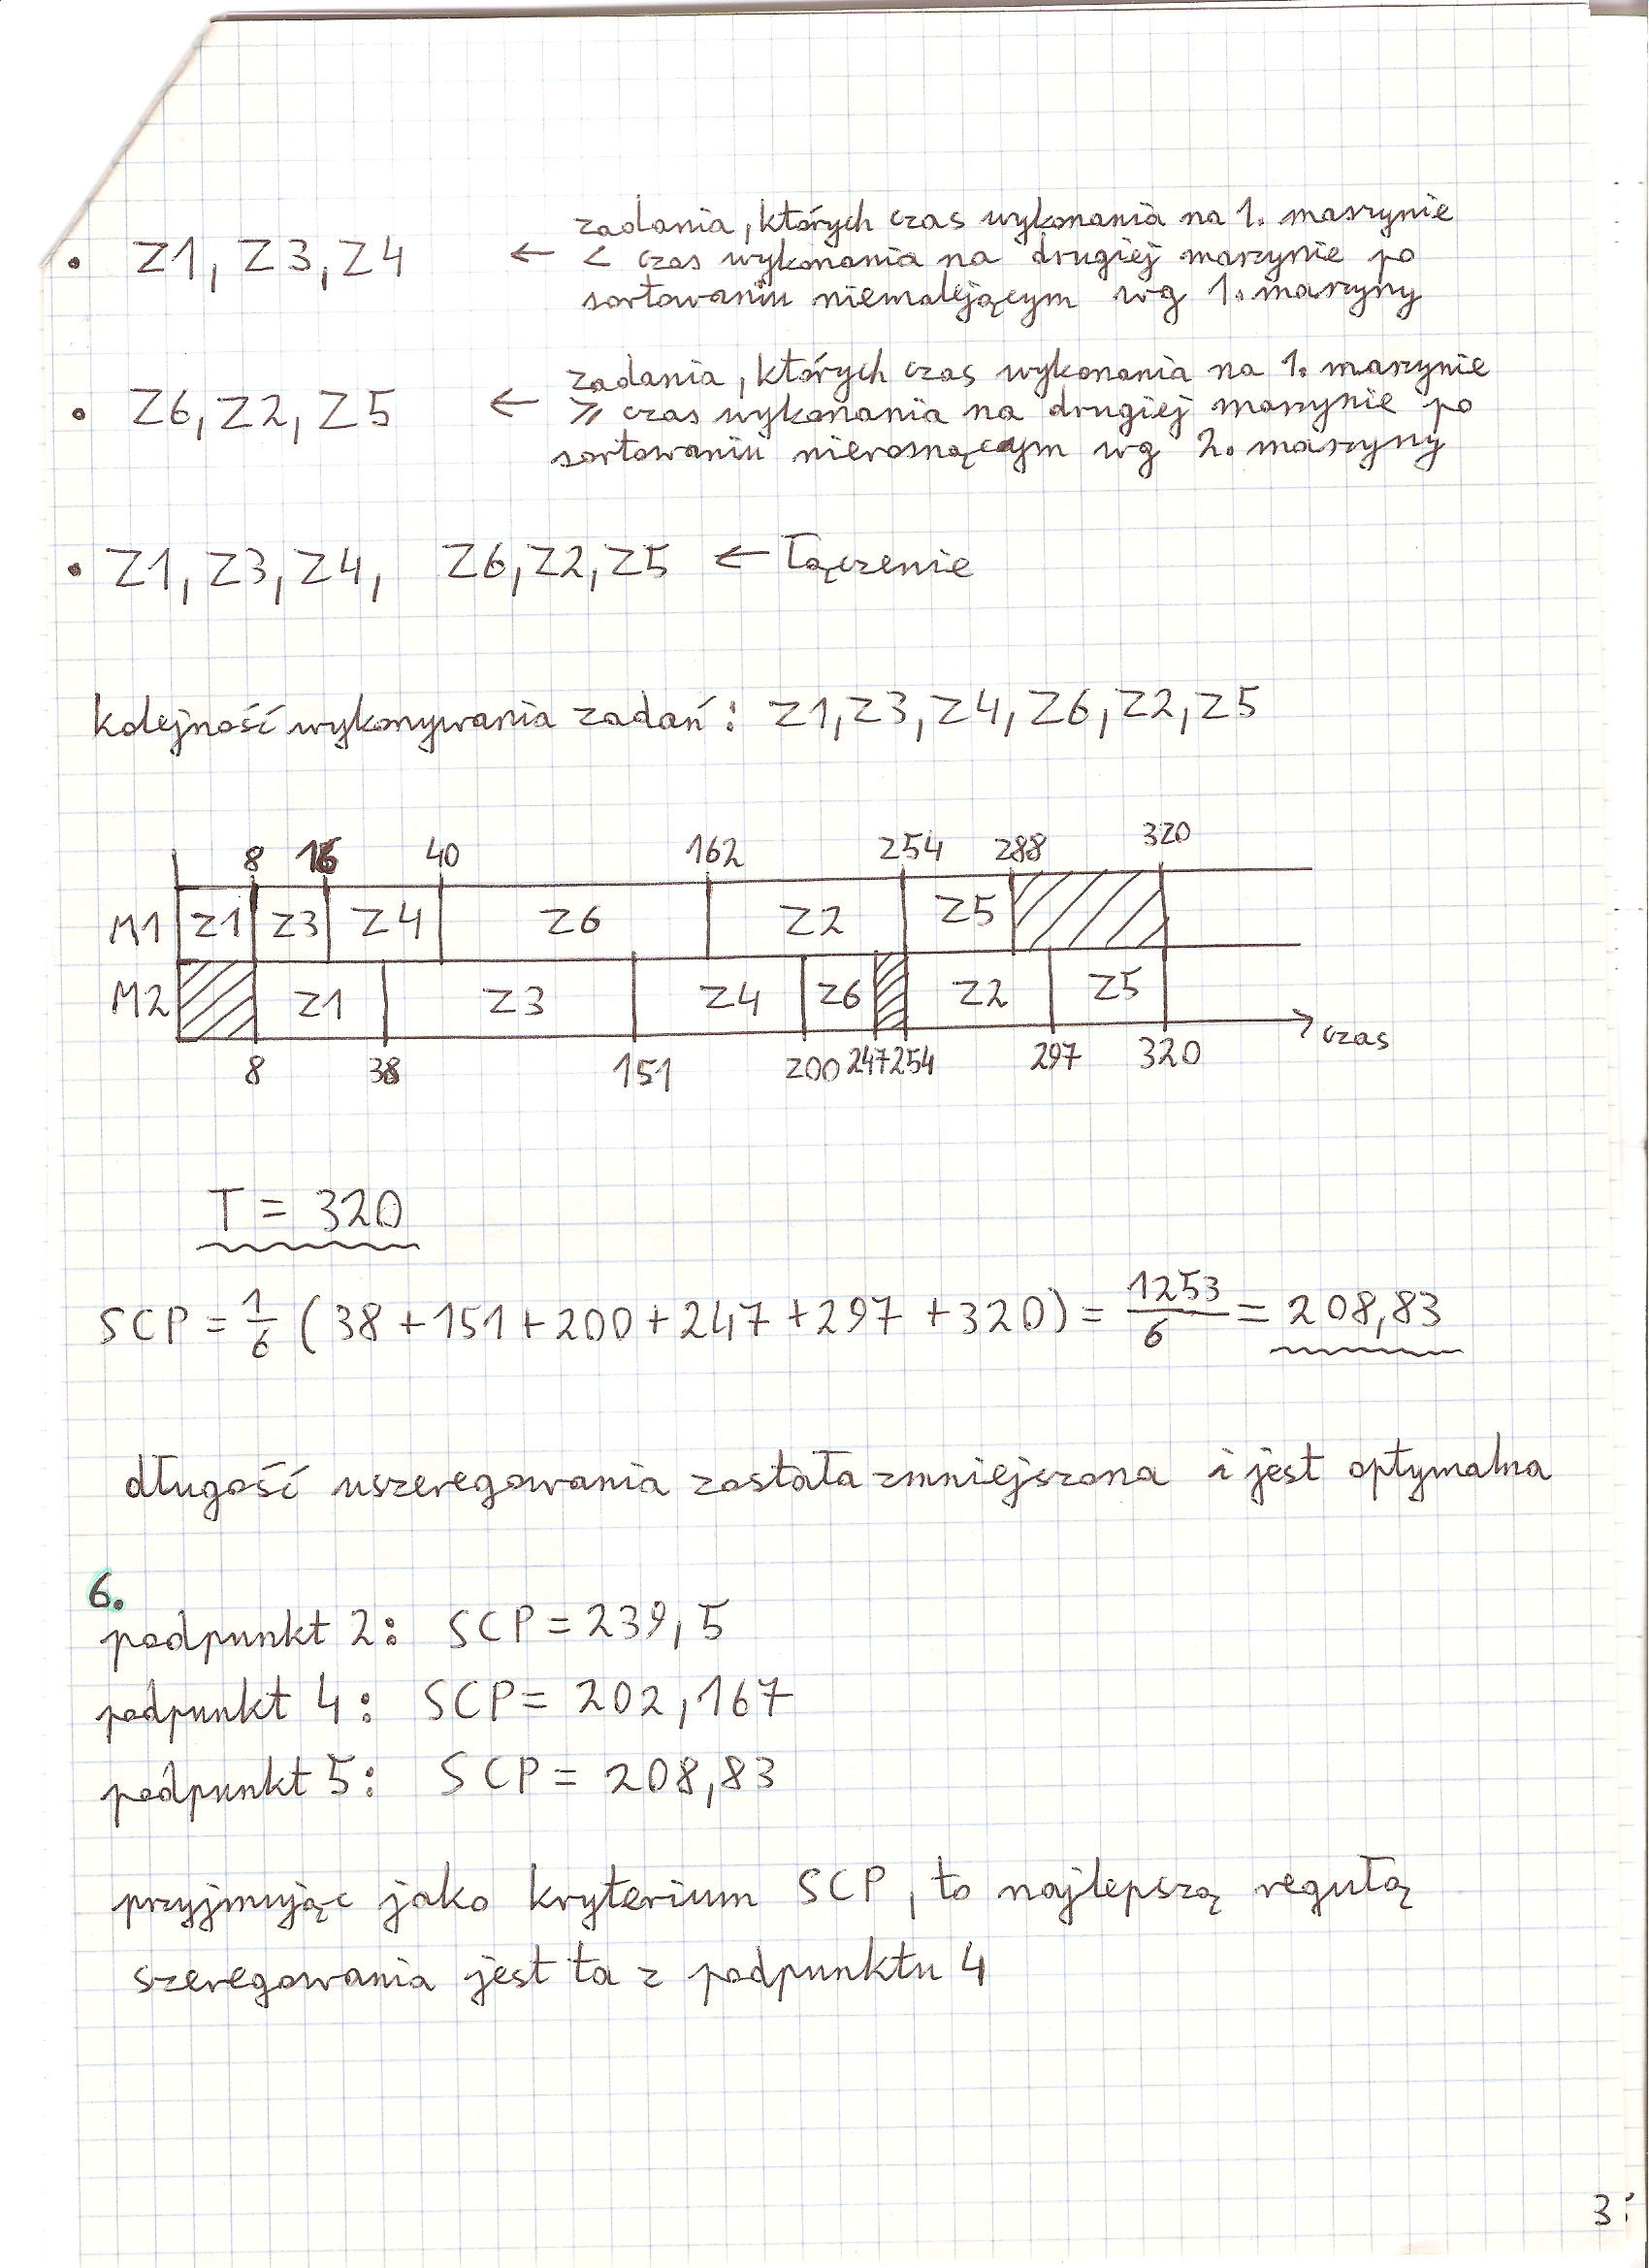 • Z1, Z3, Z4 ← zadania, których czas wykonania na 1. maszynie
< czas wykonania na drugiej maszynie po
sortowaniu niemalejącym wg 1. maszyny
• Z6, Z2, Z5 ← zadania, których czas wykonania na 1. maszynie
≥ czas wykonania na drugiej maszynie po
sortowaniu nierosnącym wg 2. maszyny
• Z1, Z3, Z4, Z6, Z2, Z5 ← łączenie
kolejność wykonywania zadań: Z1, Z3, Z4, Z6, Z2, Z5
8 16 40 162 254 288 320
M1 Z1 Z3 Z4 Z6 Z2 Z5
M2 Z1 Z3 Z4 Z6 Z2 Z5
czas
8 38 151 200 247 254 297 320
T = 320
SCP = 1/6 (38 + 151 + 200 + 247 + 297 + 320) = 1253/6 = 208,83
długość uszeregowania została zmniejszona i jest optymalna
6.
podpunkt 2: SCP = 239,5
podpunkt 4: SCP = 202,167
podpunkt 5: SCP = 208,83
przyjmując jako kryterium SCP, to najlepszą regułą
szeregowania jest ta z podpunktu 4
3